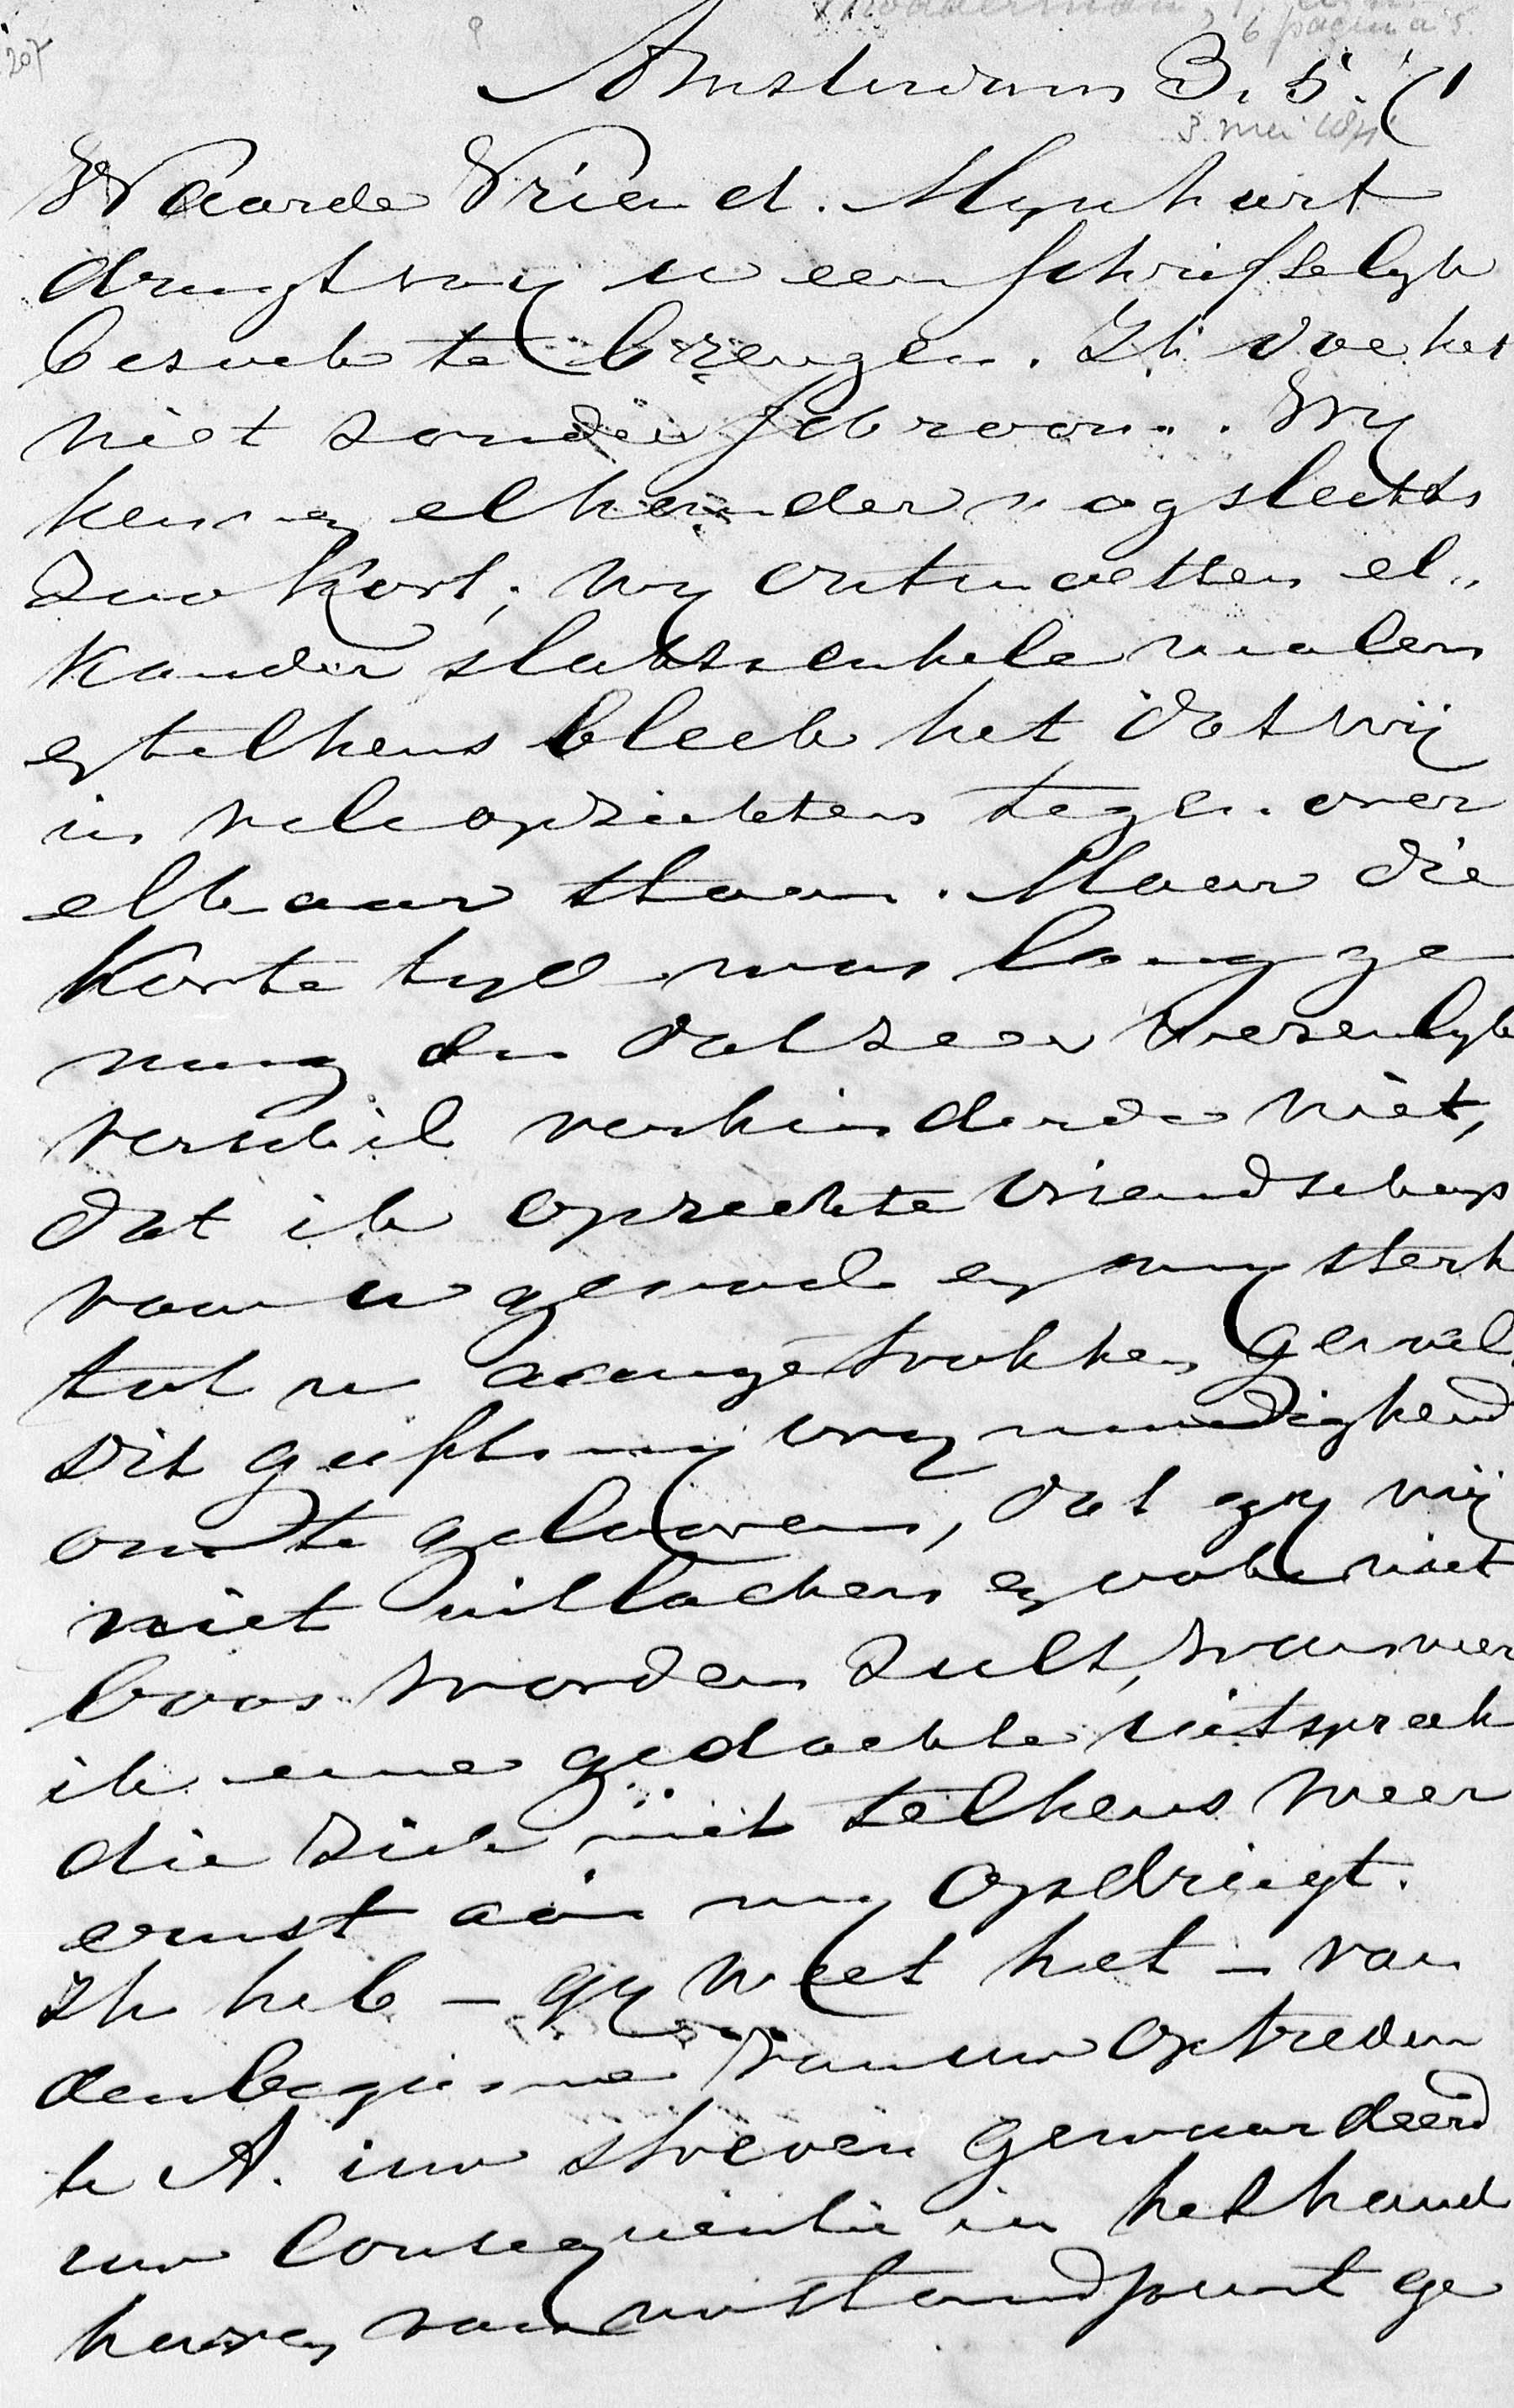 6 pagina's.
207
Amsterdam 3. 5. 71
3 mei 1871
Waarde Vriend. Myn hart
dringt my u een schriftelyk
besoek te brengen. Ik doe het
niet zonder schroom. Wy
kennen elkander nog slechts
zoo kort; wy ontmoetten el„
kander slechts enkele malen
en telkens bleek het dat wij
in vele opzichten tegenover
elkaar staan. Maar die
korte tyd was lang ge
noeg en dat zeer wezenlyk
verschil verhinderde niet,
dat ik oprechte vriendschap
voor u gevoel en my sterk
tot u aangetrokken gevoel.
Dit geeft my vrymoedigheid
om te gelooven, dat gy mij
niet uitlachen en ook niet
boos worden zult, wanneer
ik eene gedachte uitspreek
die zich met telkens meer
ernst aan my opdringt.
Ik heb – gy weet het – van
den beginne van uw optreden
te A. uw streven gewaardeerd
uw consequentie in het hand
haven van uw standpunt ge